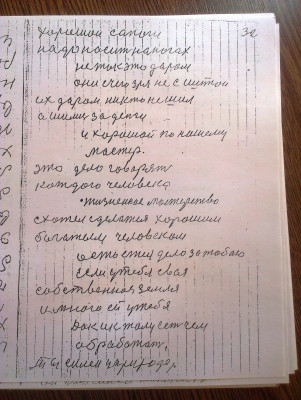 хорошои сапоги
32
надо носит на ногах
не так это даром
они с чего зря не с
их даром никто не шил
а шили за денги
и хорошой по нашему
мастер.
это дело говорят
каждого человека
жизненное мастерство
схотел сделатся хорошим
богатым человеком
остается дело за тобаю
если у тебя своя
собственная земля
и много ей у тебя
дак и к тому ест чем
обработат,
ты силен в природе,